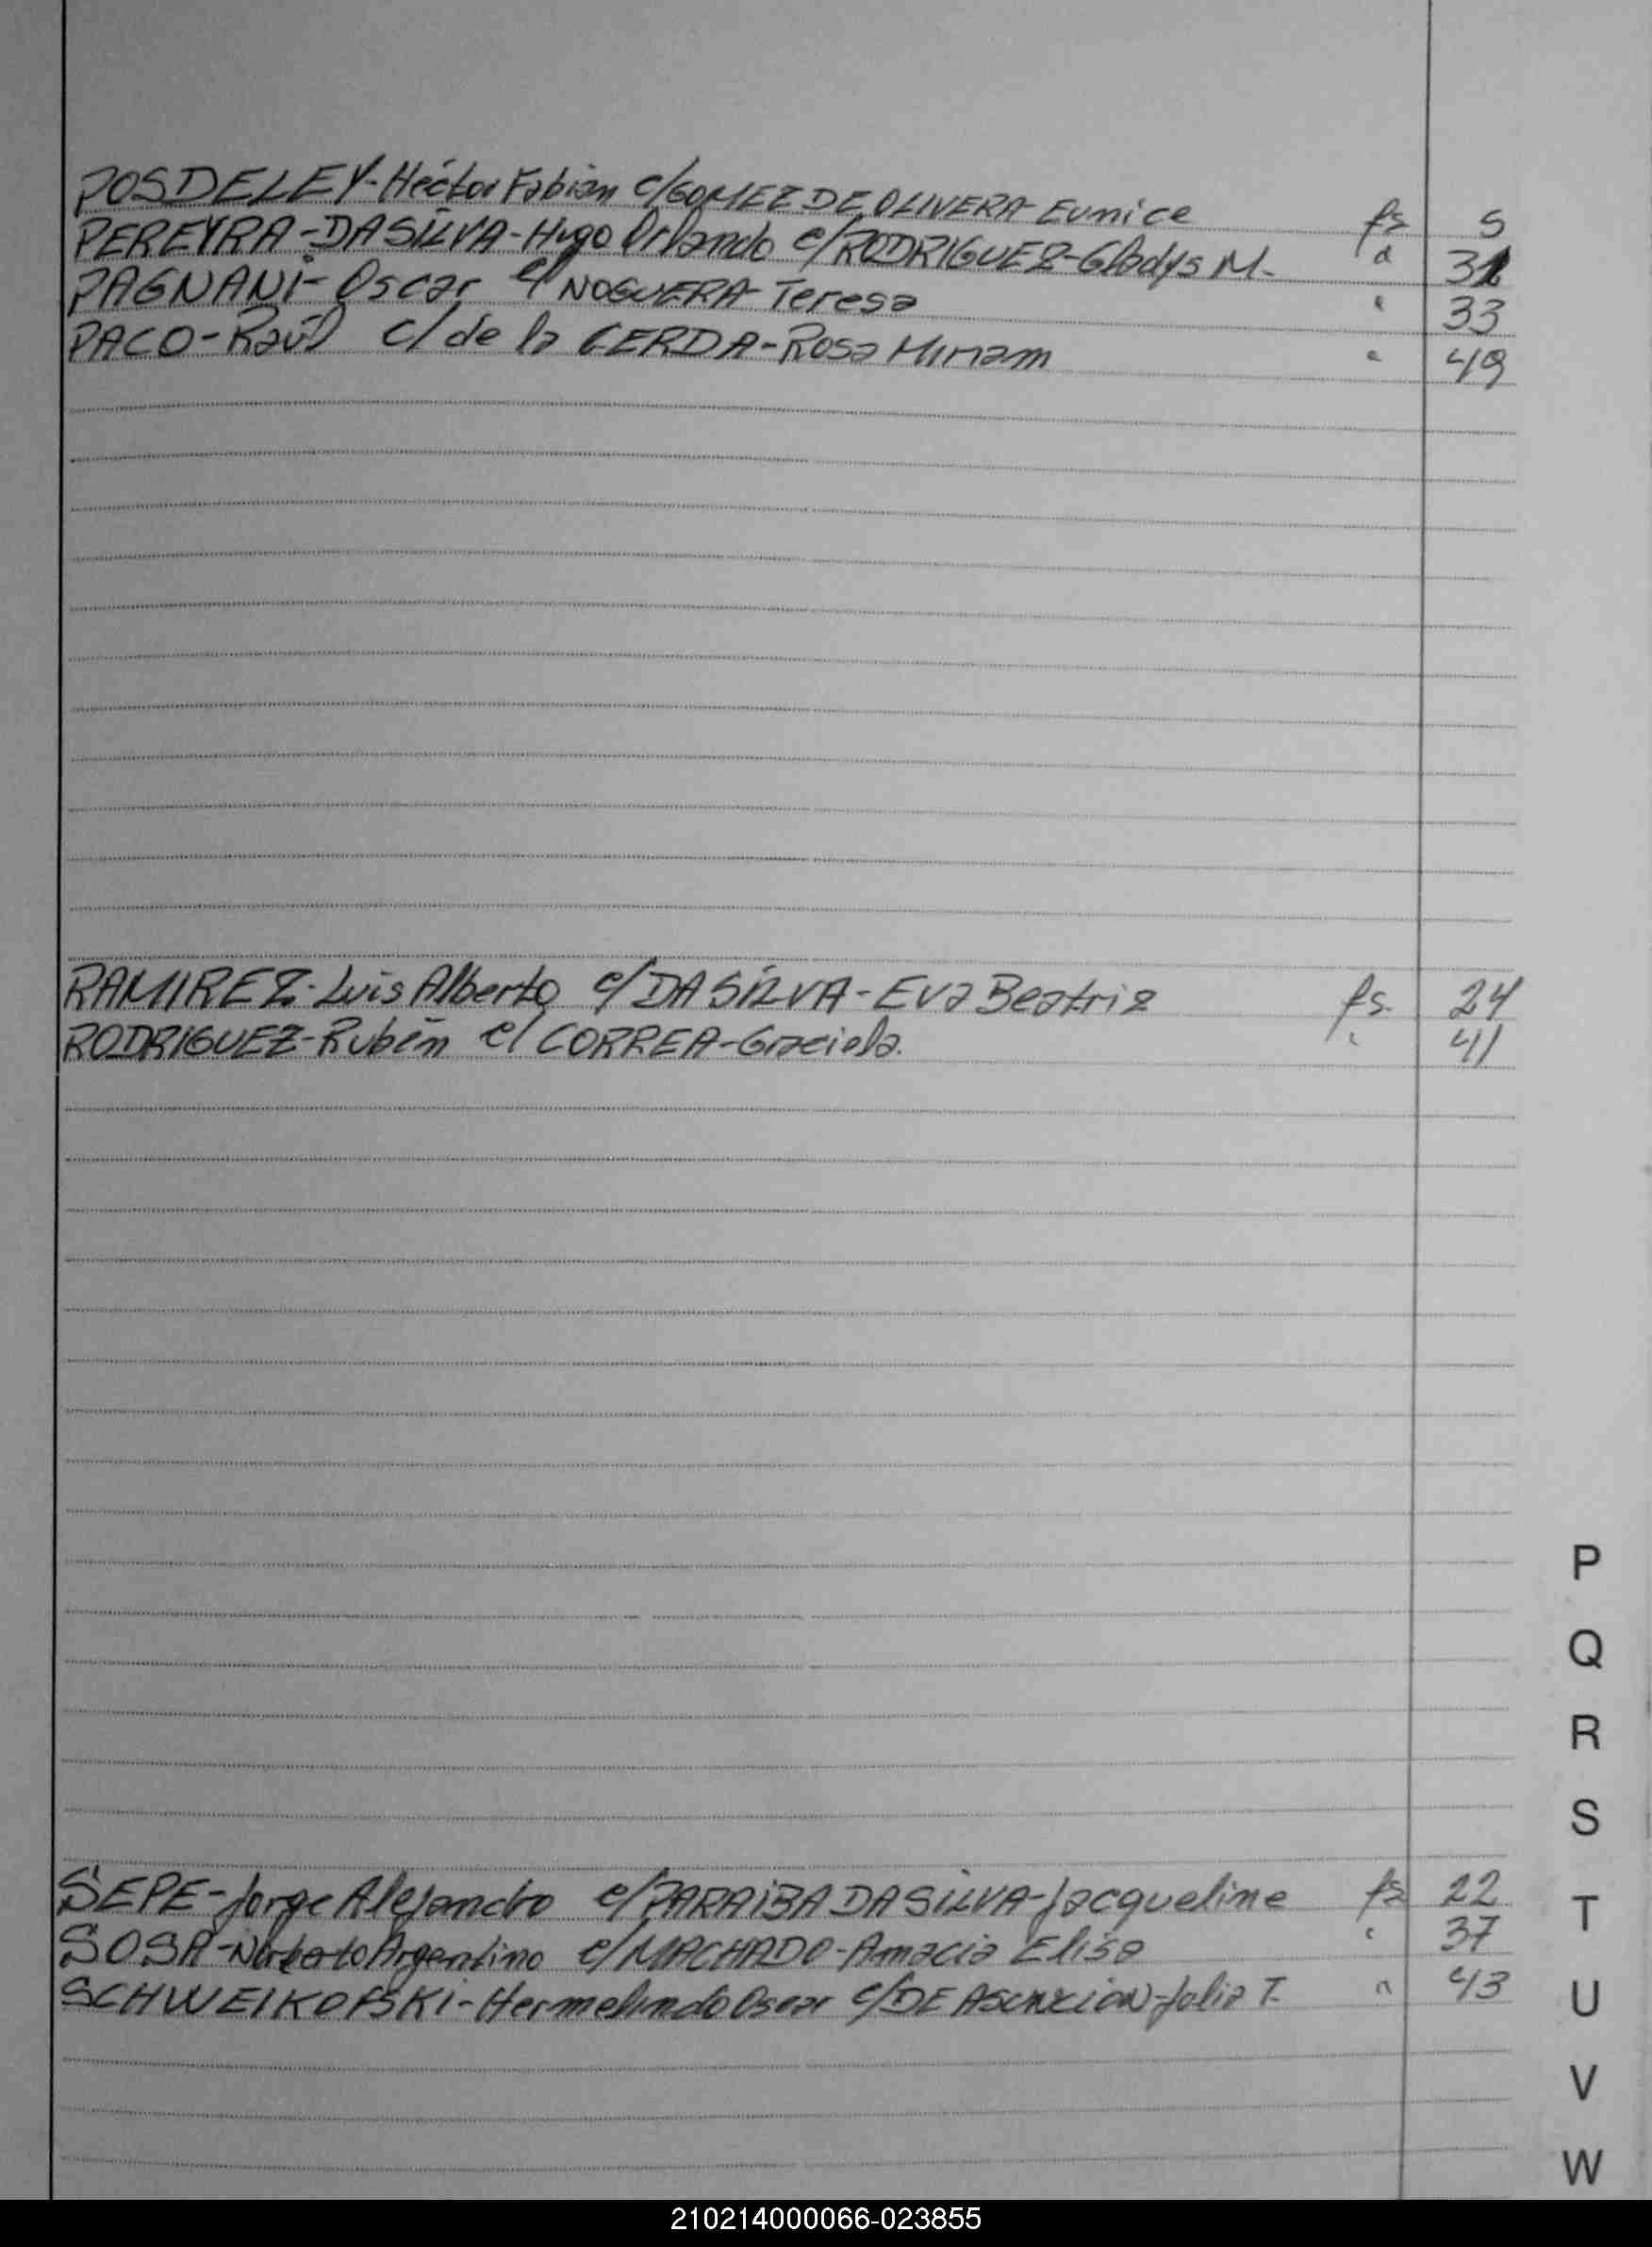 POSDELEY-Héctor Fabian c/GOMEZ DE OLIVERA-Eunice fs 5
PEREYRA-DASILVA-Hugo Orlando c/RODRIGUEZ-Gladys M. " 31
PAGNANI-Oscar c/NOGUERA-Teresa " 33
PACO-Raúl c/de la CERDA-Rosa Miriam " 49
RAMIREZ-Luis Alberto c/DASILVA-Eva Beatriz fs. 24
RODRIGUEZ-Rubén c/CORREA-Graciela. " 41
SEPE-Jorge Alejandro c/PARAIBA DASILVA-Jacqueline fs 22
SOSA-Norberto Argentino c/MACHADO-Amacia Elisa " 37
SCHWEIKOFSKI-Hermelindo Oscar c/DE ASUNCION-Julia T. " 43
P
Q
R
S
T
U
V
W
210214000066-023855